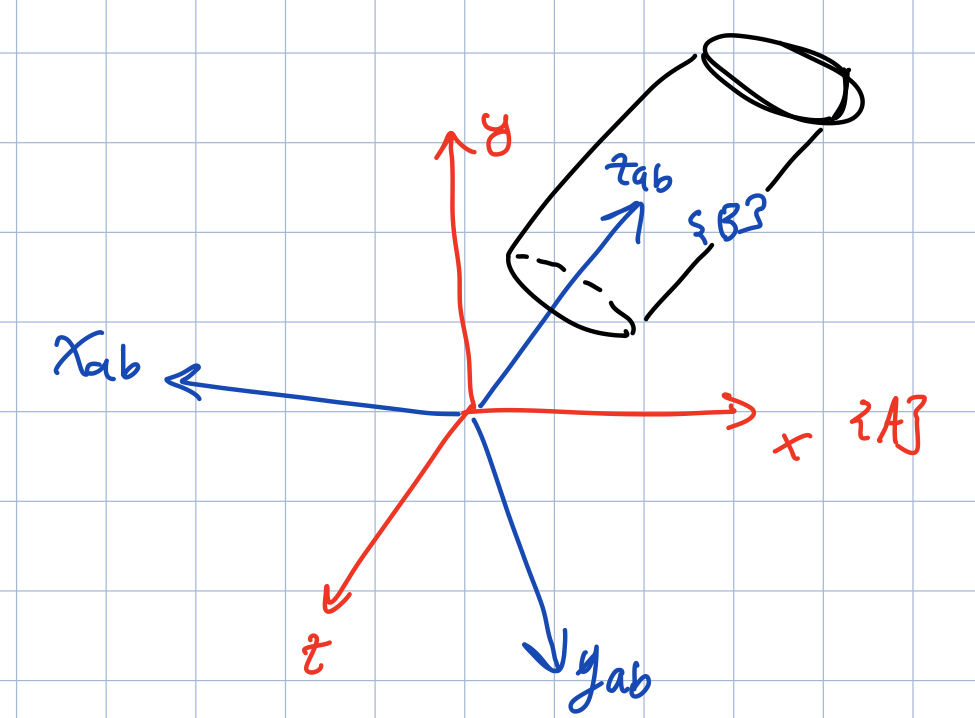 y
zab
{B}
xab
x {A}
z
yab